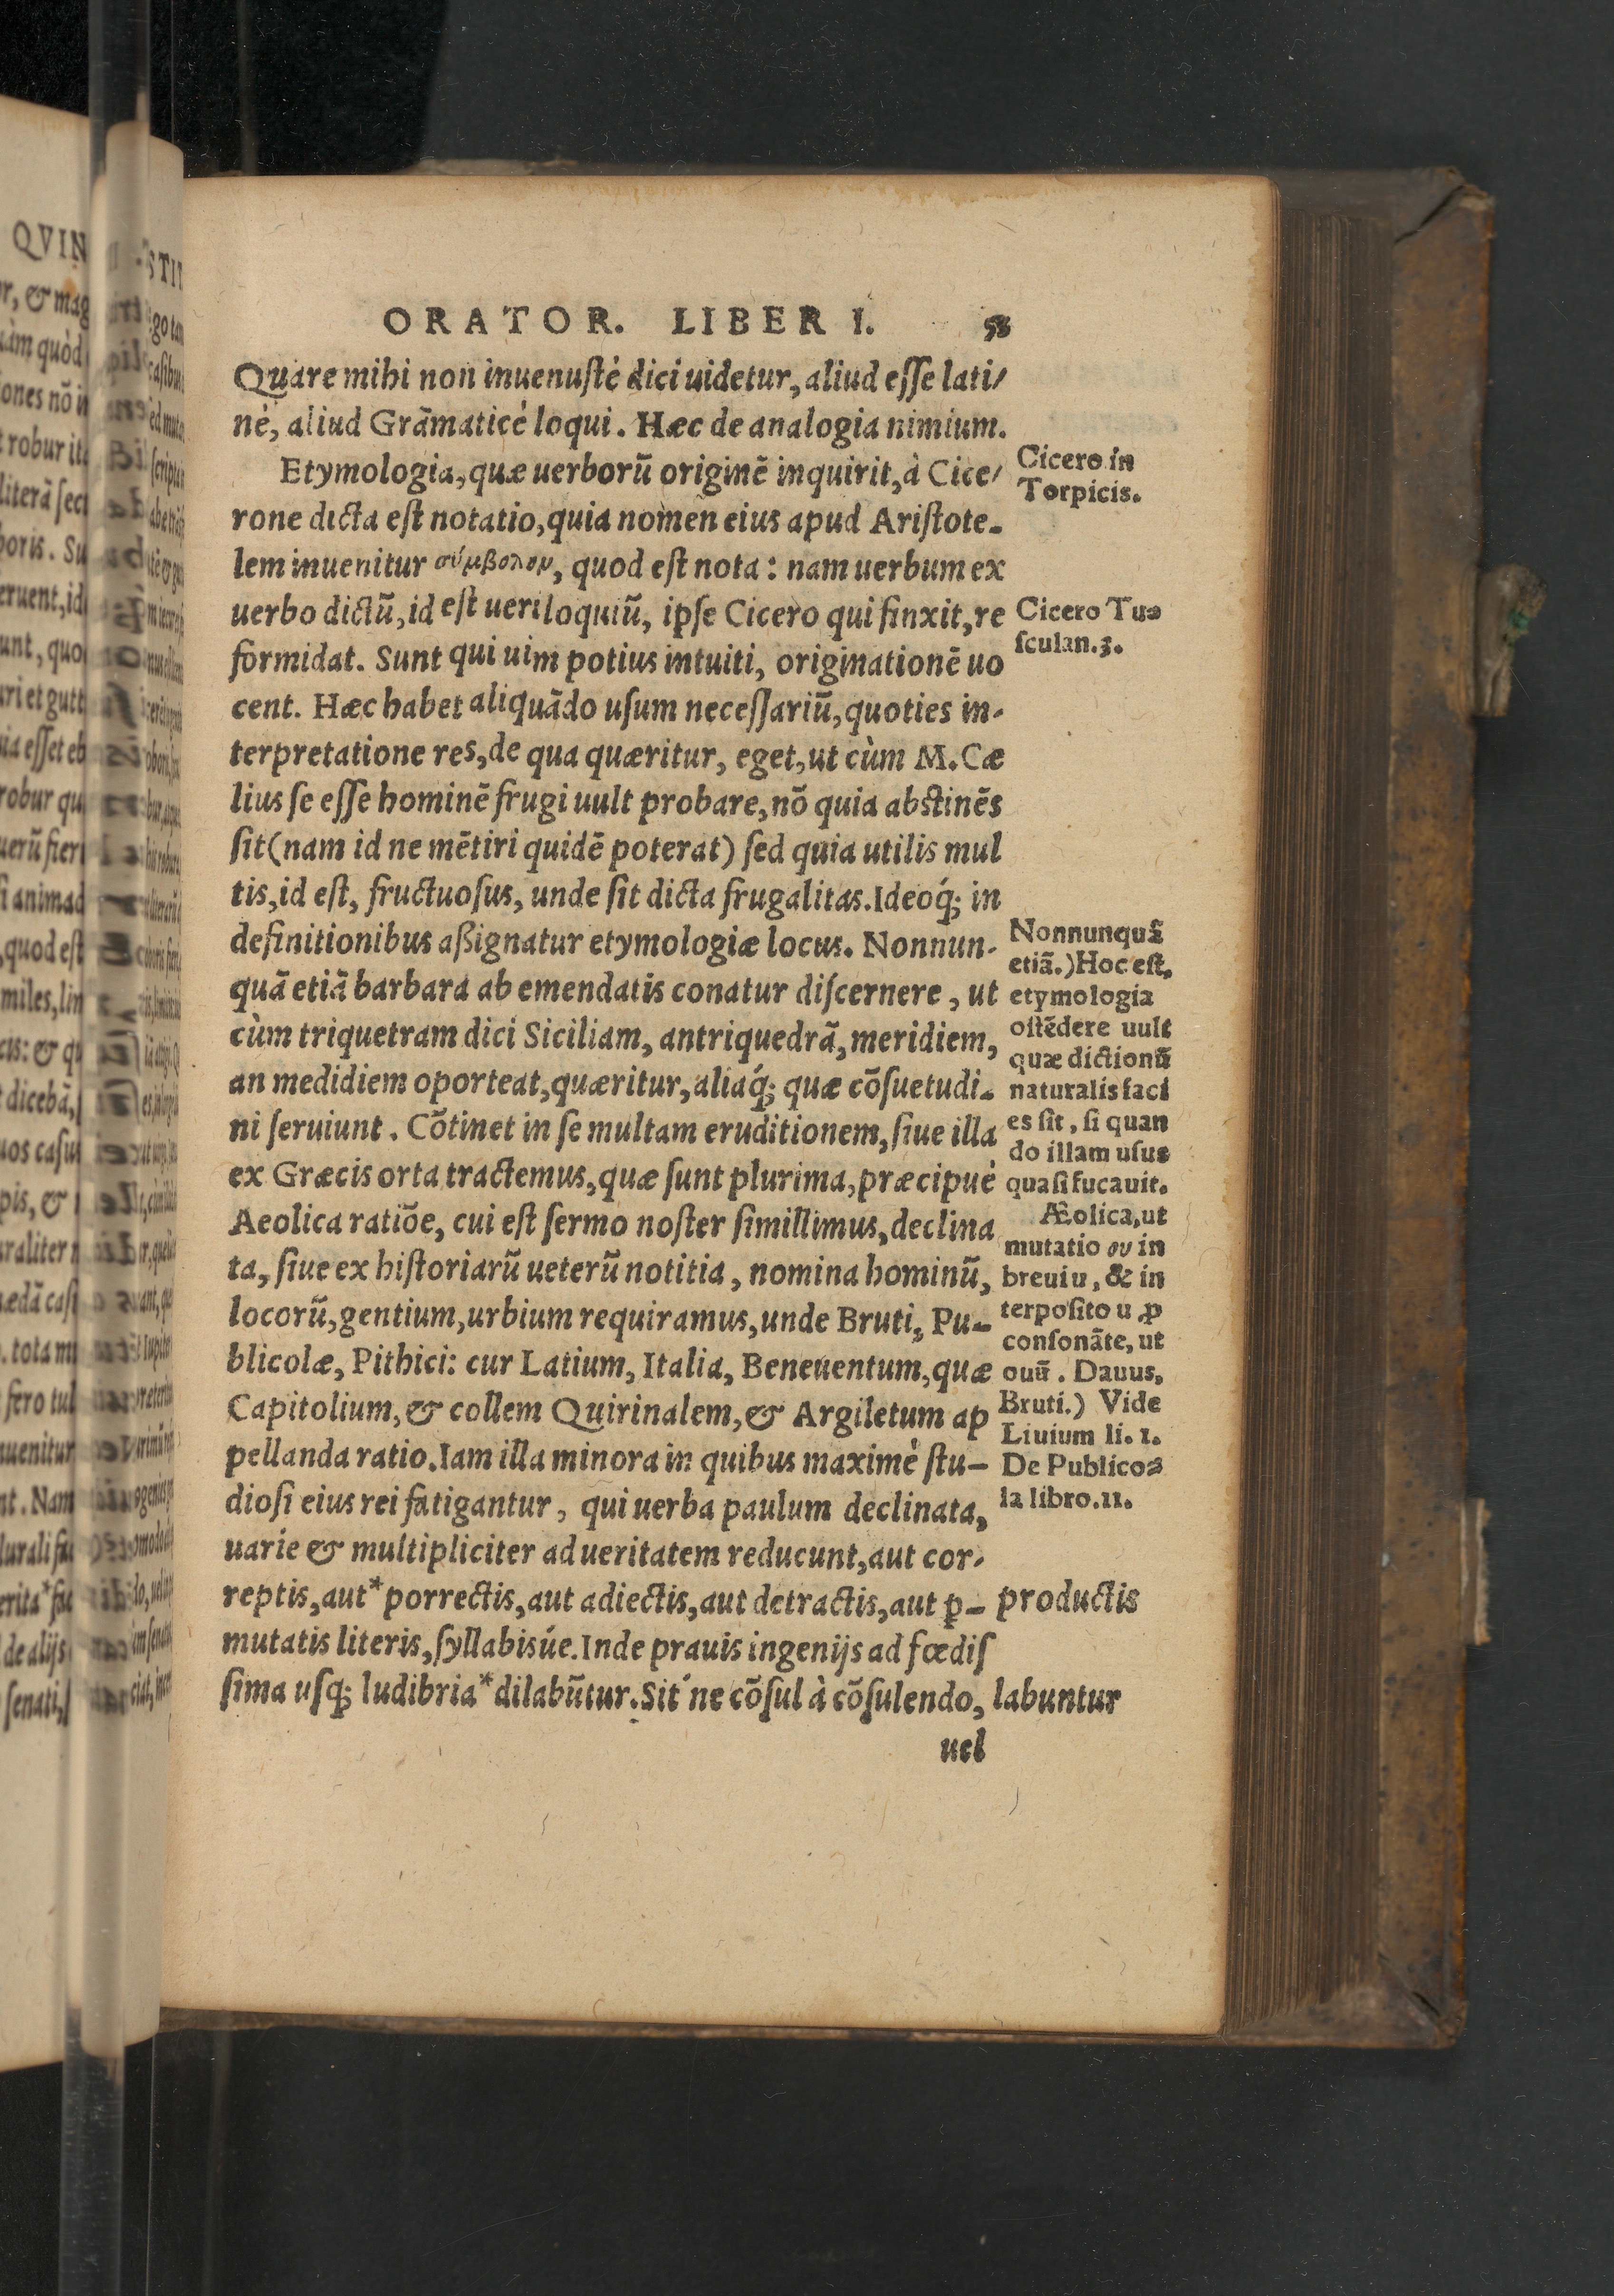 ORATOR. LIBER I. 53
Quare mihi non inuenusté dici uidetur, aliud esse lati/
né, aliud Grãmaticé loqui. Hæc de analogia nimium.
Etymologia, quæ uerborũ originẽ inquirit, à Cice/
rone dicta est notatio, quia nomen eius apud Aristote-
lem inuenitur σύμβολομ, quod est nota: nam uerbum ex
uerbo dictũ, id est ueriloquiũ, ipse Cicero qui finxit, re
formidat. Sunt qui uim potius intuiti, originationẽ uo
cent. Hæc habet aliquãdo usum necessariũ, quoties in-
terpretatione res, de qua quæritur, eget, ut cùm M. Cæ
lius se esse hominẽ frugi uult probare, nõ quia abstinẽs
sit (nam id ne mẽtiri quidẽ poterat) sed quia utilis mul
tis, id est, fructuosus, unde sit dicta frugalitas. Ideoq́; in
definitionibus aßignatur etymologiæ locus. Nonnun-
quã etiã barbara ab emendatis conatur discernere, ut
cùm triquetram dici Siciliam, an triquedrã, meridiem,
an medidiem oporteat, quæritur, aliaq́; quæ cõsuetudi-
ni seruiunt. Cõtinet in se multam eruditionem, siue illa
ex Græcis orta tractemus, quæ sunt plurima, præcipué
Aeolica ratiõe, cui est sermo noster simillimus, declina
ta, siue ex historiarũ ueterũ notitia, nomina hominũ,
locorũ, gentium, urbium requiramus, unde Bruti, Pu-
blicolæ, Pithici: cur Latium, Italia, Beneuentum, quæ
Capitolium, & collem Quirinalem, & Argiletum ap
pellanda ratio. Iam illa minora in quibus maximé stu-
diosi eius rei fatigantur, qui uerba paulum declinata,
uarie & multipliciter ad ueritatem reducunt, aut cor-
reptis, aut* porrectis, aut adiectis, aut detractis, aut ꝑ-
mutatis literis, syllabisúe. Inde prauis ingenijs ad fœdis
sima usq; ludibria* dilabũtur. Sit́ ne cõsul à cõsulendo,
uel
Cicero in
Torpicis.
Cicero Tu-
sculan.3.
Nonnunquã
etiã.) Hoc est,
etymologia
ostẽdere uult
quæ dictionũ
naturalis faci
es sit, si quan
do illam usus
quasi fucauit.
Æolica, ut
mutatio ου in
breui u, & in
terposito u ꝓ
consonãte, ut
ouũ. Dauus,
Bruti.) Vide
Liuium li. 1.
De Publico-
la libro. 11.
productis
labuntur